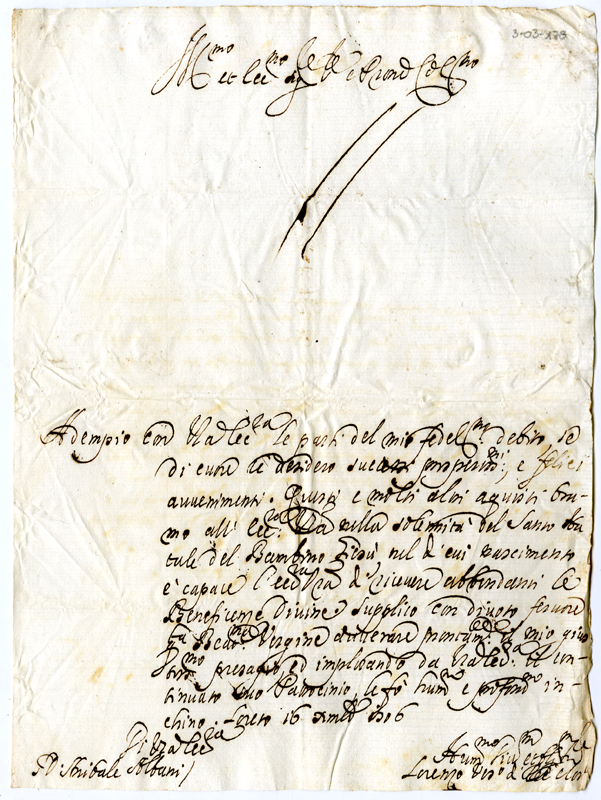 3-03-178
Ill.mo et Ecc.mo
Adempio con V.ra Ecc.za le parti del mio fedel.mo debito, se
di cuore le desidero successi prosperiss.mi, e felici
avvenimenti. Questi e molti altri aguri bra-
mo all' Ecc.za V.ra nella solennità del Santo Na-
tale del Bambino Giesù nel di cui nascimento
è capace l'Ecc.za V.ra di ricevere abbondanti le
Beneficenze Divine supplico con divoto fervore
la Beat.ma Vergine avverare il mio
presagio, ed implorando da V.ra Ecc.za il con-
tinuato suo Patrocinio, le fò hum.mo e profond.mo in-
chino. Loreto 16 1706
Di V.ra Ecc.za
D. Anibale Albani
Hum.mo
Lorenzo